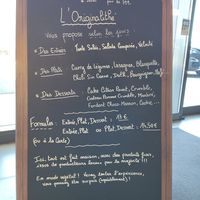 L'Originalithé
vous propose selon les jours
• Des Entrées : Tarte Salée, Salade Composée, Velouté
• Des Plats : Curry de légumes, Lasagnes, Blanquette,
Chili Sin Carne, Dalh, Bourguignon,
• Des Desserts : Cake Citron Pavot, Crumble,
Gateau Pomme Crumble,
Fondant Choco Marron, Cookie, ...
Formule : Entrée, Plat, Dessert
Entrée, Plat ou Plat, Dessert : 14,50€
(ou à la Carte)
Ici, tout est fait maison, avec des produits frais,
issus de producteurs locaux pour la majorité !!!
En mode végétal ! Venez tenter l'expérience,
vous pourriez être surpris (agréablement) !